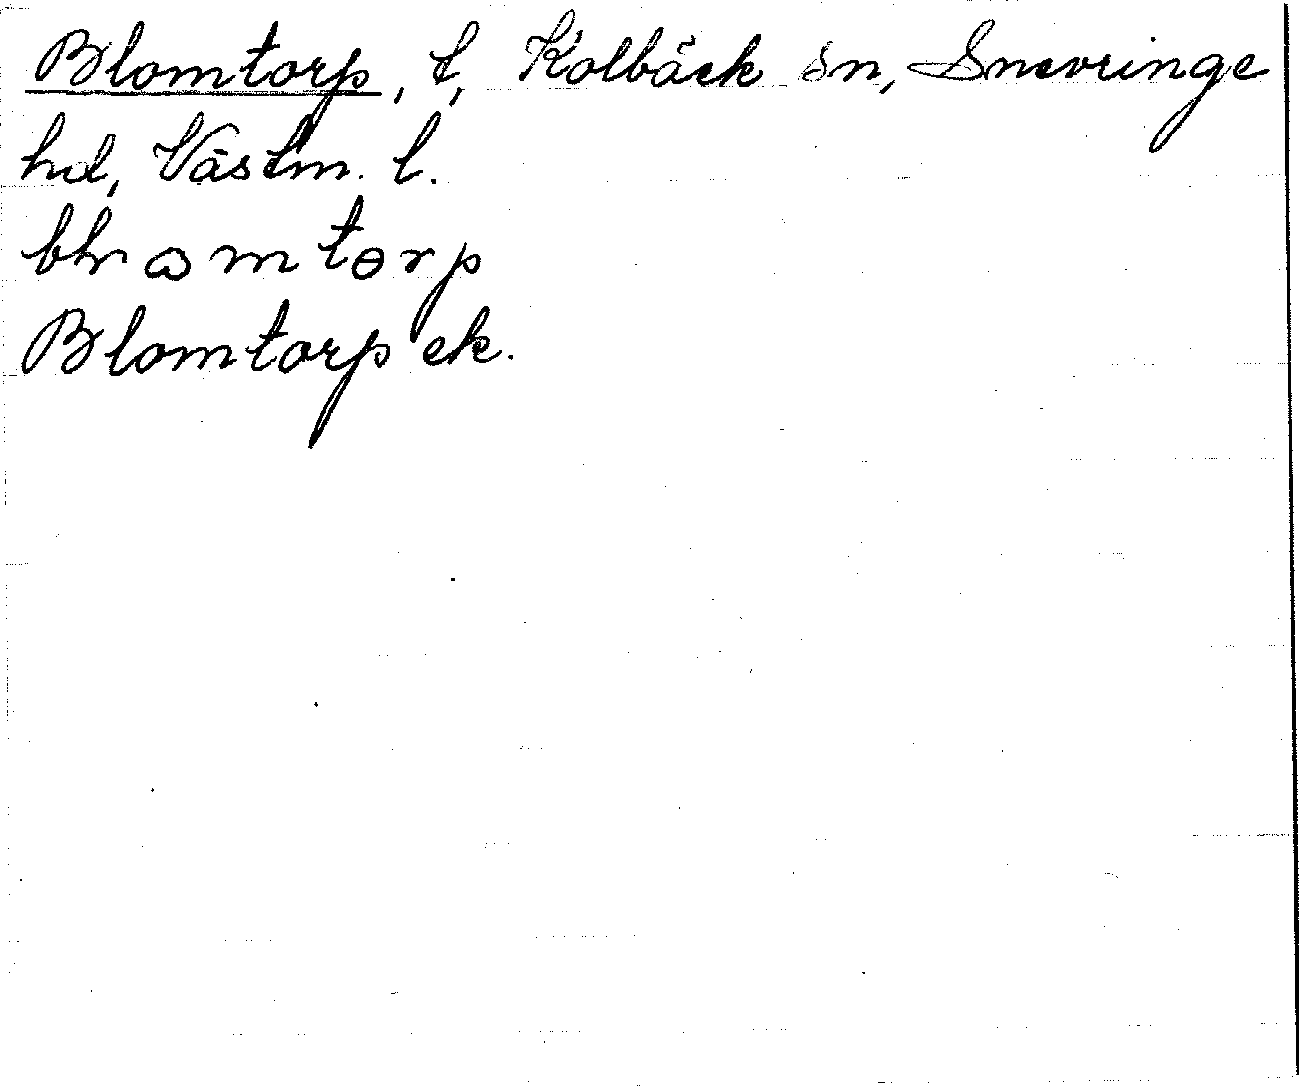 Blomtorp, t, Kolbäck sn, Snevringe
hd, Västm. l.
bɽɷmtɵrp
Blomtorp ek.